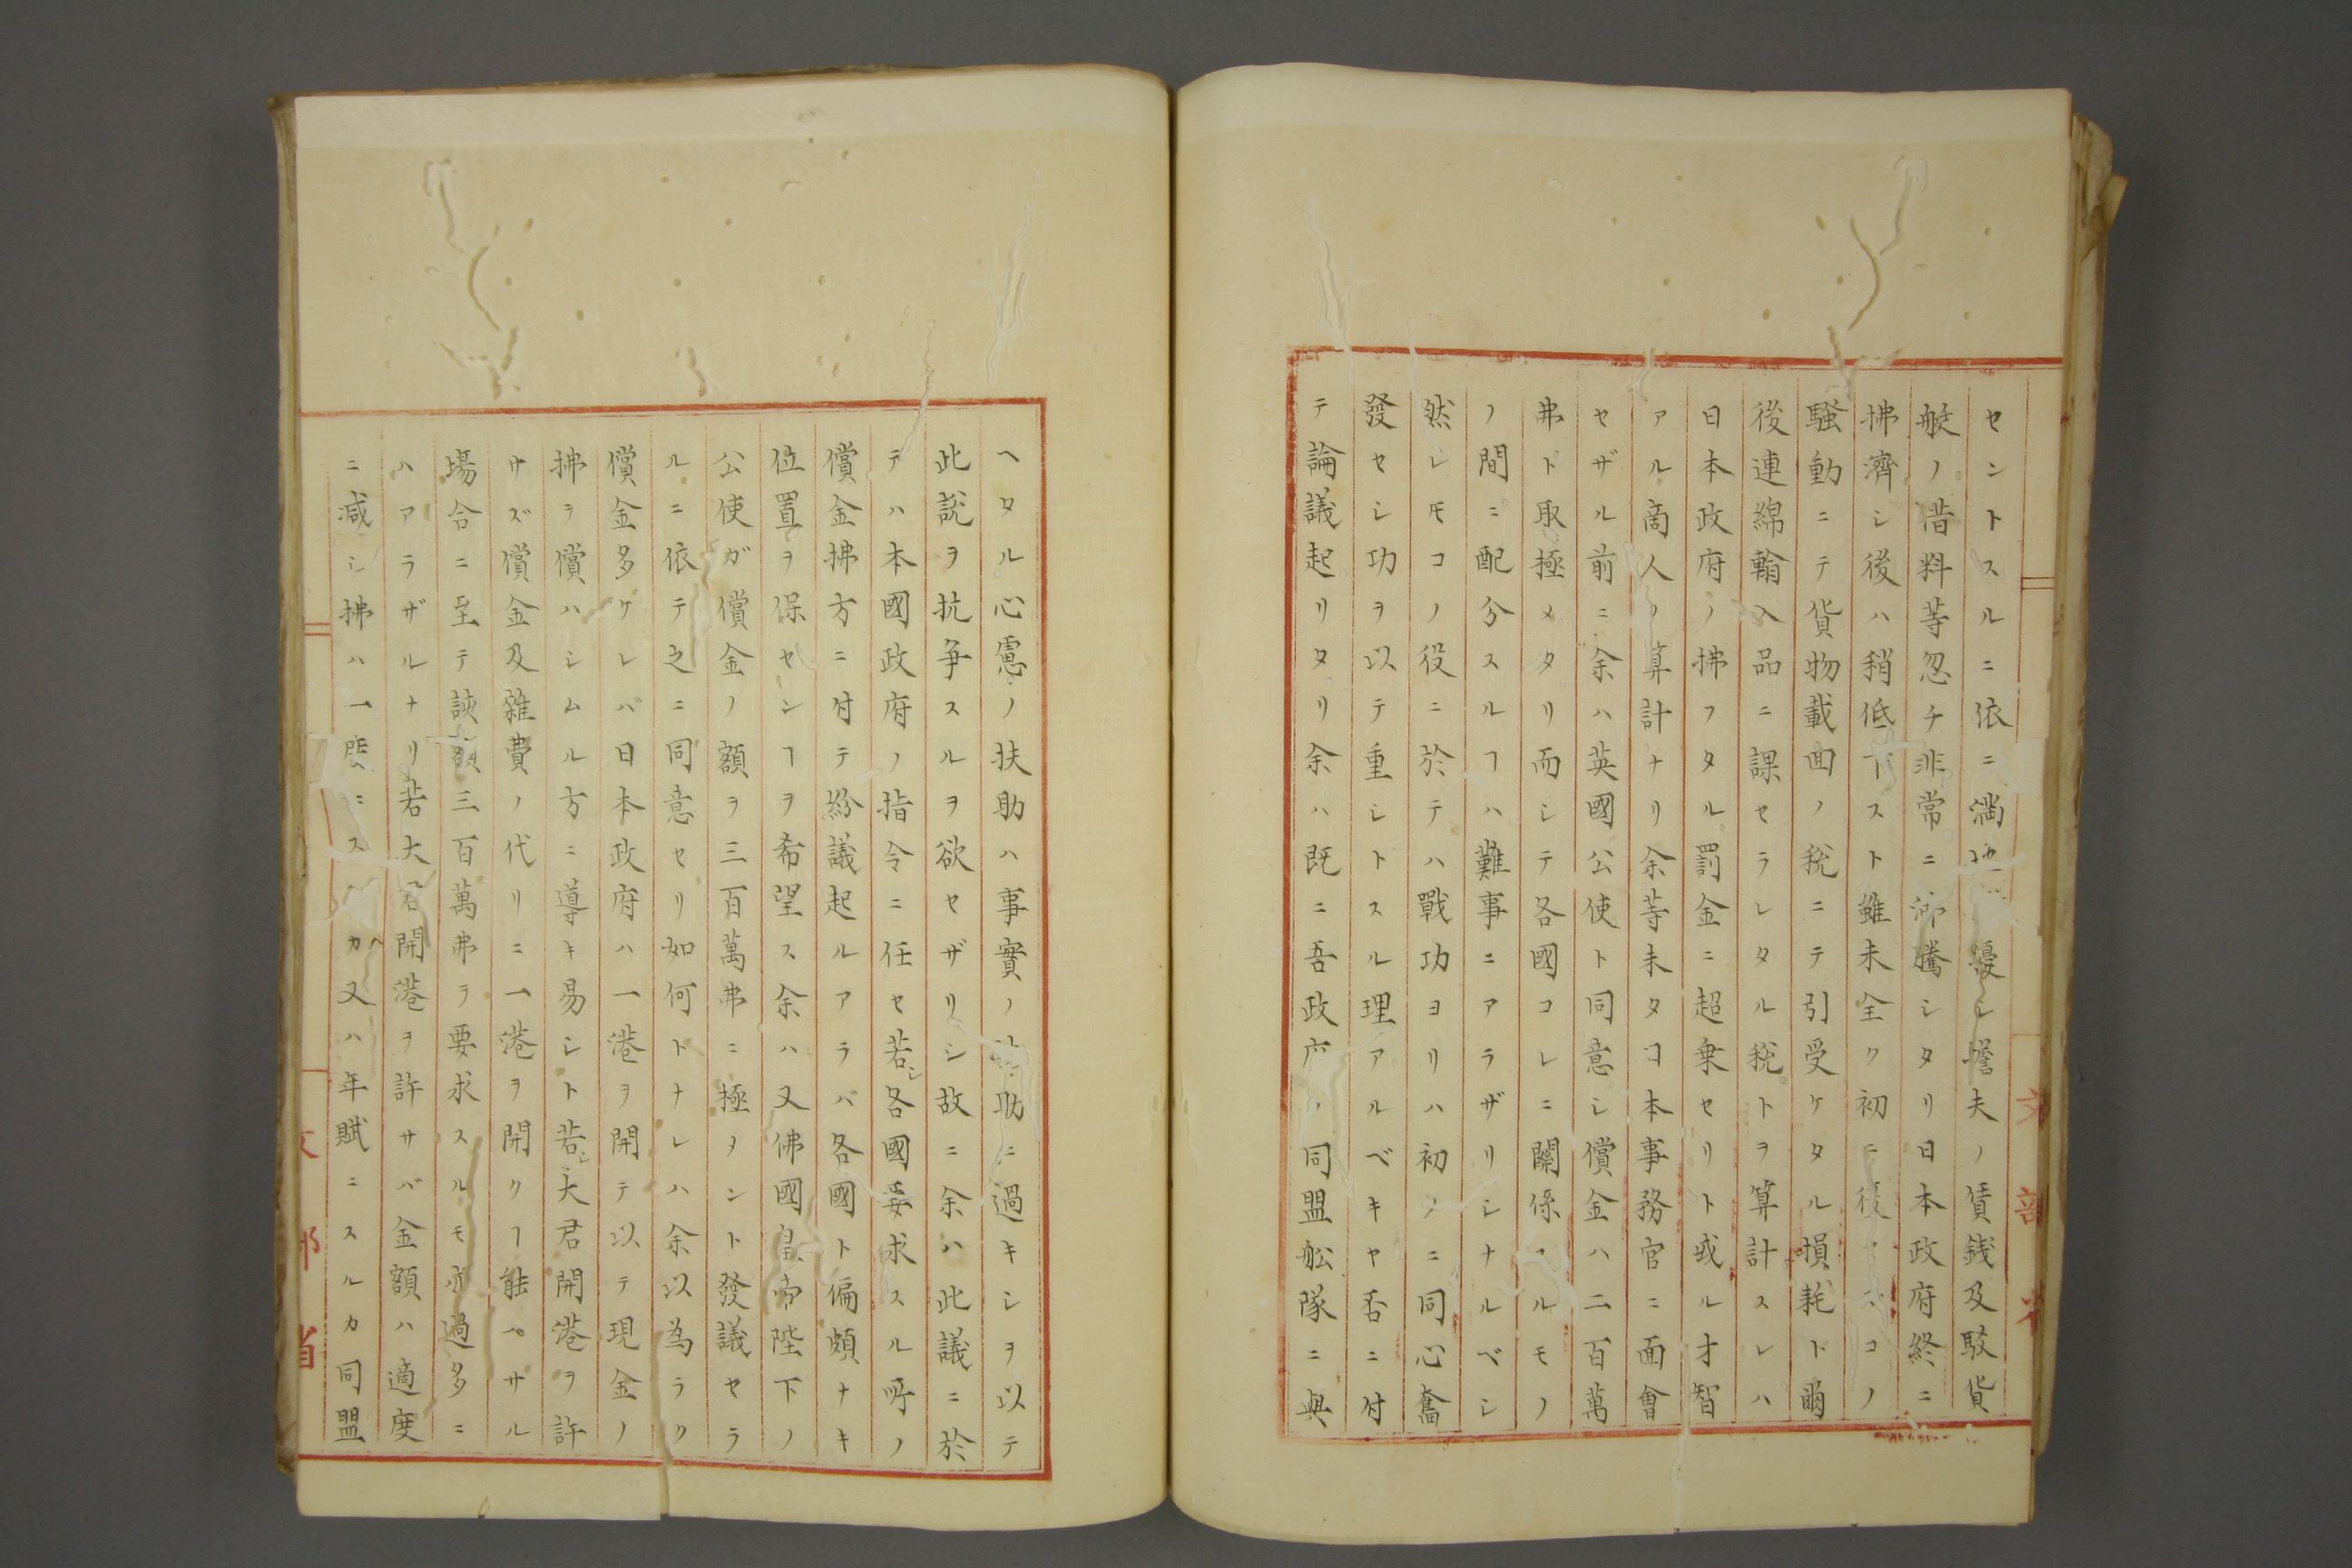 セントスルニ依ニ満 擾シ詹夫ノ賃銭及駄貨
艘ノ借料等忽チ非常ニ沸騰シタリ日本政府終ニ
拂濟シ後ハ稍低下スト雖未全ク初ニ復セズコノ
騒動ニテ貨物載回ノ税ニテ引受ケタル損耗ト爾
後連綿輸入品ニ課セラレタル税トヲ算計スレハ
日本政府ノ拂フタル罰金ニ超乗セリト或ル才智
アル商人ノ算計ナリ余等未タコ本事務官ニ面會
セザル前ニ余ハ英國公使ト同意シ償金ハ二百萬
弗ト取極メタリ而シテ各國コレニ關係スルモノ
ノ間ニ配分スルヿハ難事ニアラザリシナルベシ
然レモコノ役ニ於テハ戰功ヨリハ初メニ同心奮
發セシ功ヲ以テ重シトスル理アルベキヤ否ニ付
テ論議起リタリ余ハ既ニ吾政府ノ同盟舩隊ニ與
ヘタル心慮ノ扶助ハ事實ノ 助ニ過キシヲ以テ
此説ヲ抗争スルヲ欲セザリシ故ニ余ハ此議ニ於
テハ本國政府ノ指令ニ任セ若シ各國要求スル所ノ
償金拂方ニ付テ紛議起ルアラバ各國ト偏頗ナキ
位置ヲ保センヿヲ希望ス余ハ又佛國皇帝陛下ノ
公使ガ償金ノ額ヲ三百萬弗ニ極メント發議セラ
ルニ依テ之ニ同意セリ如何トナレハ余以為ラク
償金多ケレバ日本政府ハ一港ヲ開テ以テ現金ノ
拂ヲ償ハシムル方ニ導キ易シト若シ大君開港ヲ許
サズ償金及雜費ノ代リニ一港ヲ開クヿ能ハサル
場合ニ至テ該額三百萬弗ヲ要求スルモ亦過多ニ
ハアラザルナリ若大君開港ヲ許サバ金額ハ適度
ニ减シ拂ハ一時ニス カ又ハ年賦ニスルカ同盟
文部省
文部省